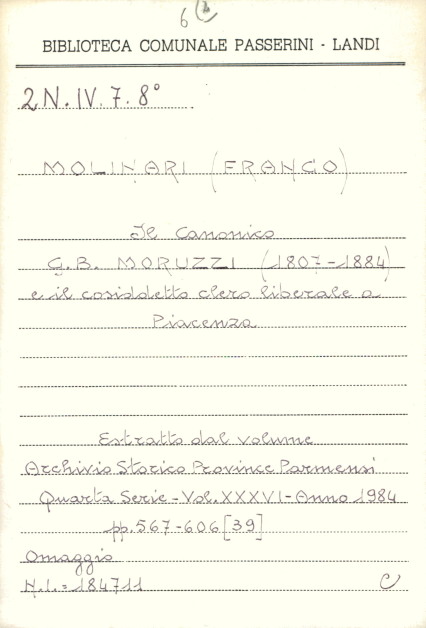 6
BIBLIOTECA COMUNALE PASSERINI - LANDI
2N.IV.7.8°
MOLINARI (FRANCO)
Il Canonico
G.B. MORUZZI (1807-1884)
e il cosiddetto clero liberale a
Piacenza
Estratto dal volume
Archivio Storico Province Parmensi
Quarta Serie - Vol. XXXVI - Anno 1984
pp. 567-606 [39]
Omaggio
N.I. = 184711
C